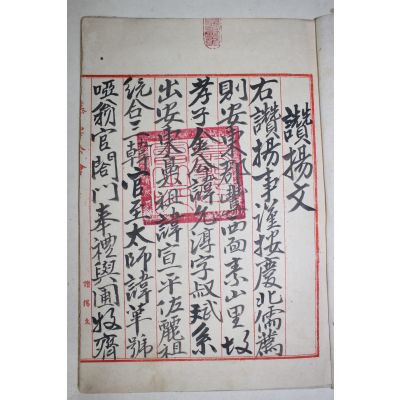 讚揚文
右讚揚事謹按慶北儒薦
則安東郡豊西面素山里故
孝子金公諱允淳字叔斌系
出安東鼻祖諱宣平佐麗祖
統合三韓官至太師諱革號
啞翁官閤門奉禮與圃牧齊
讚揚文